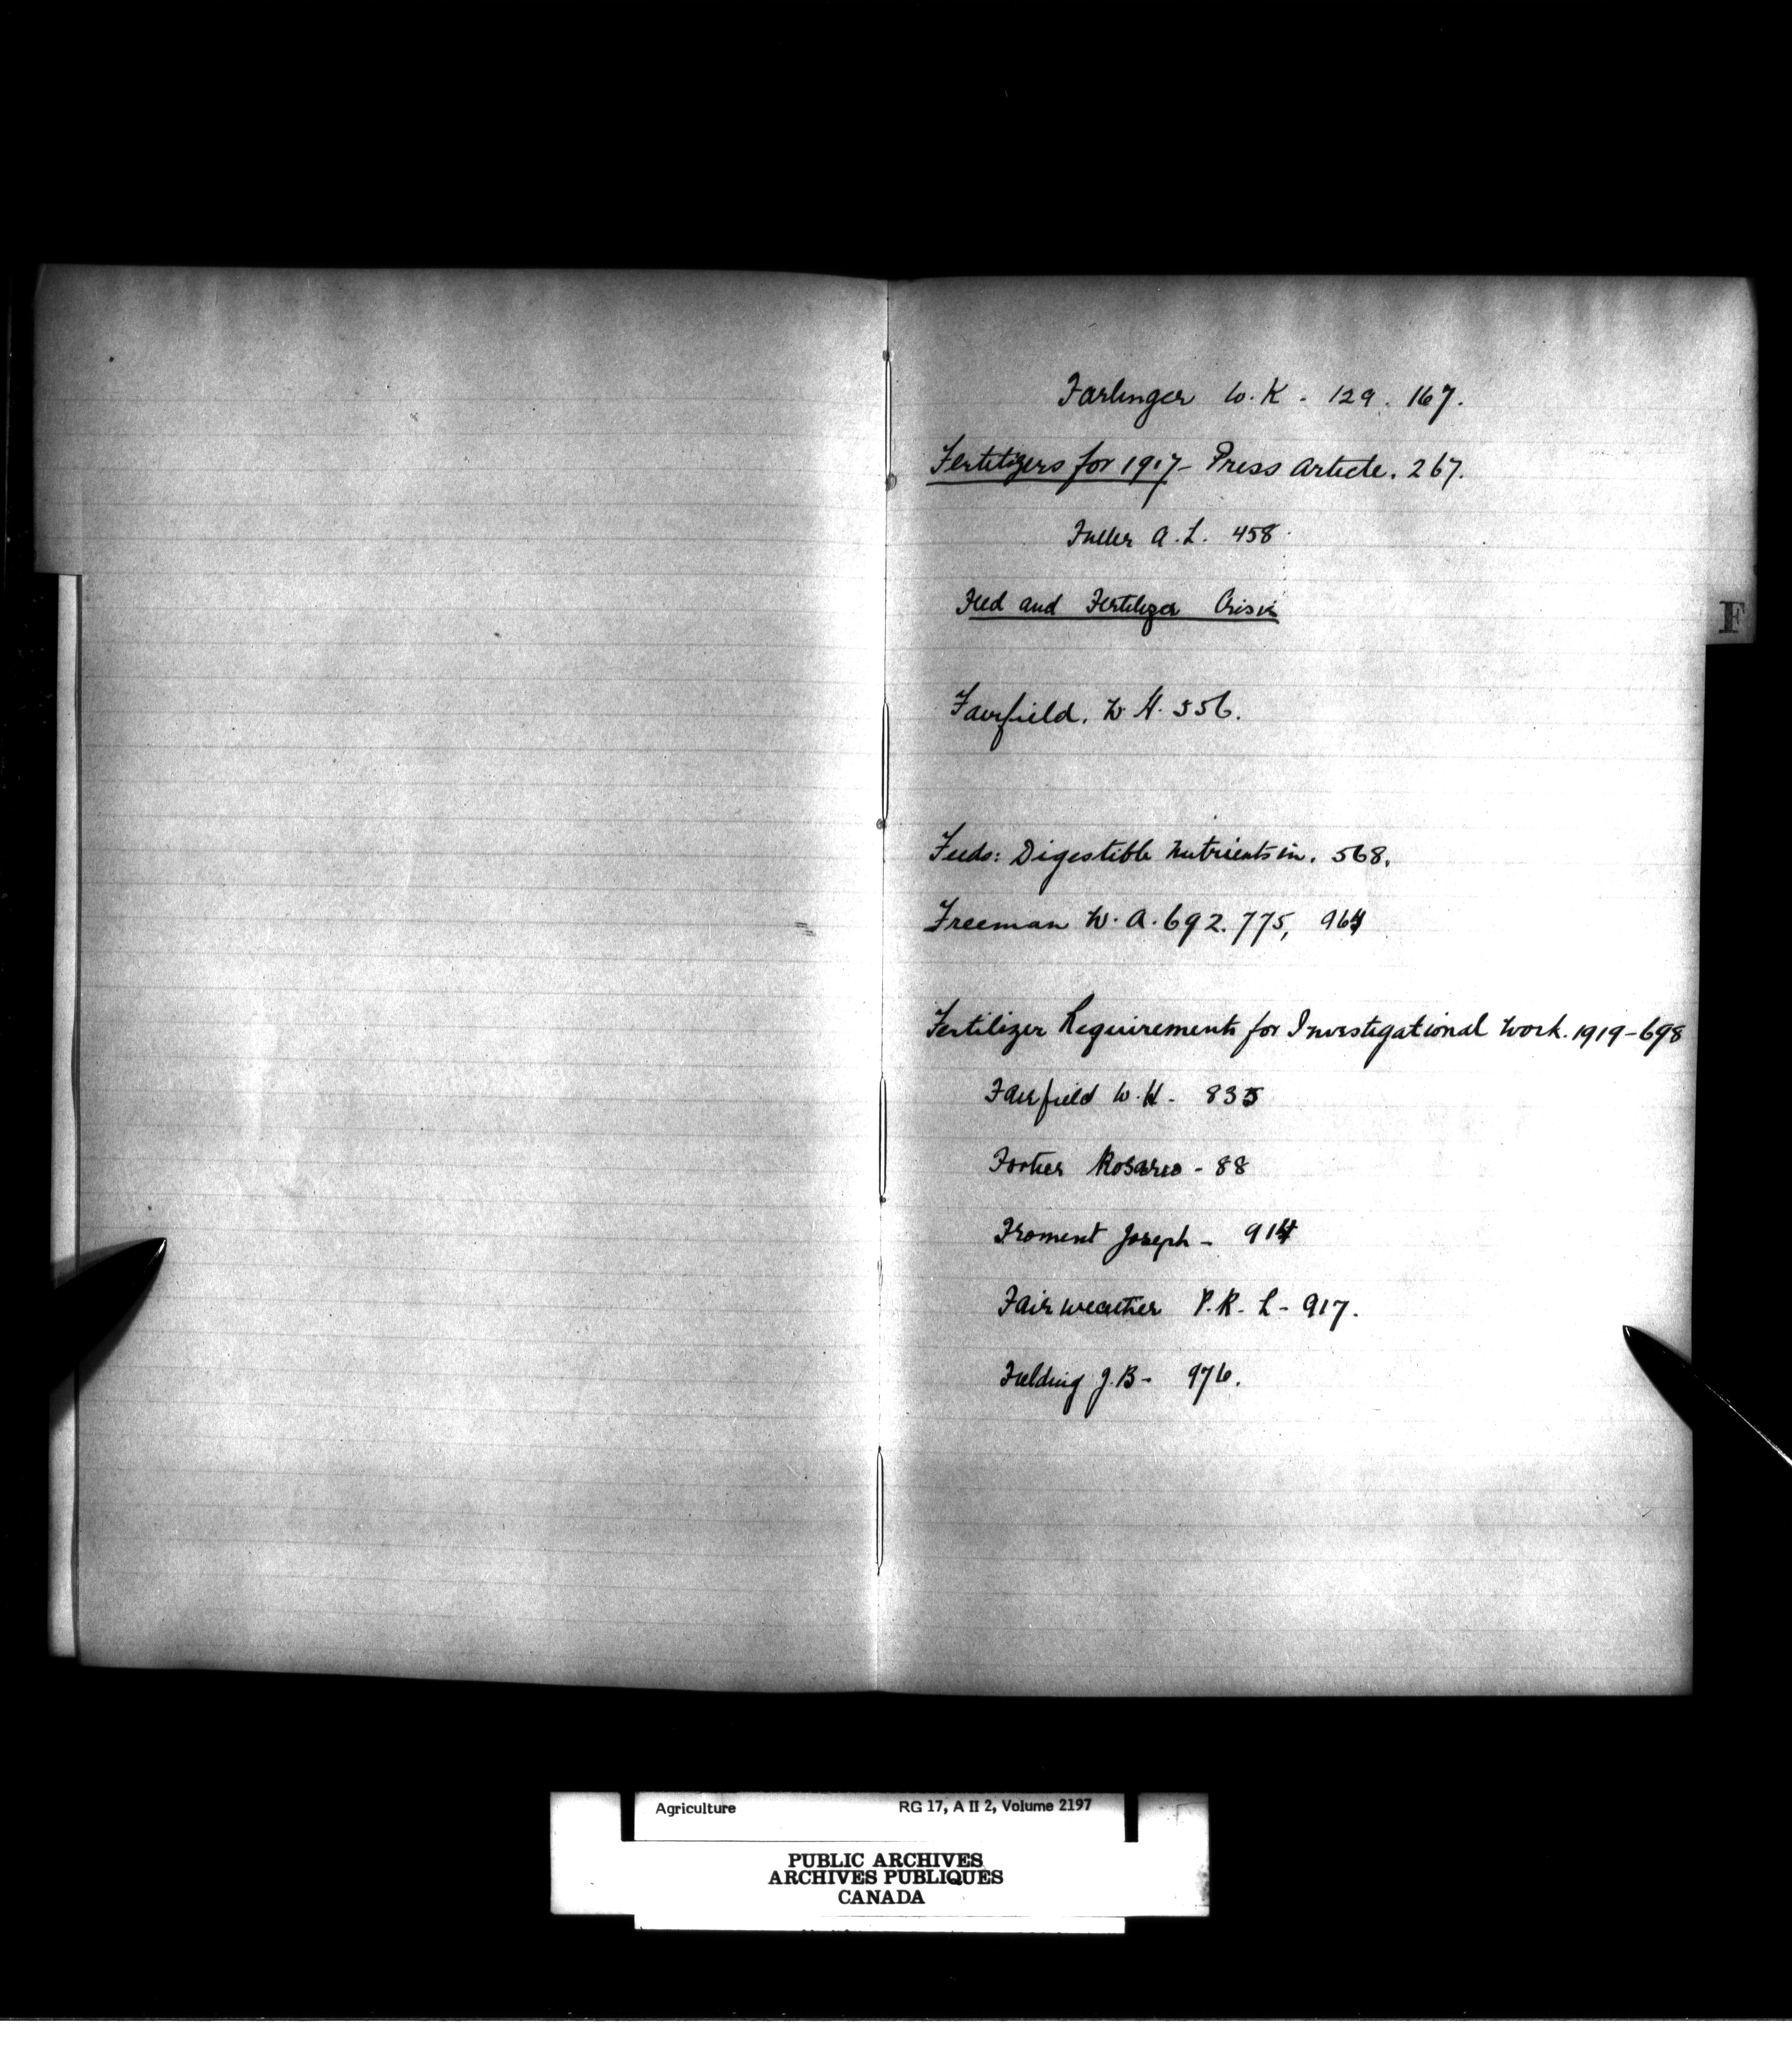 Farlinger W. K - 129. 167.
Fertilizers for 1917 - Press Article. 267.
Fuller A. L. 458
Feed and Fertilizer Crisis
F
Fairfield. W H. 556.
Feeds: Digestible Nutrients in. 568.
Freeman W. A. 692. 775, 964
Fertilizer Requirements for Investigational Work. 1919-698
Fairfield W. H - 835
Fortier Rosario - 88
Froment Joseph - 914
Fairweather P. R. L - 917.
Fielding J. B - 976.
Agriculture RG 17, A II 2, Volume 2197
PUBLIC ARCHIVES
ARCHIVES PUBLIQUES
CANADA